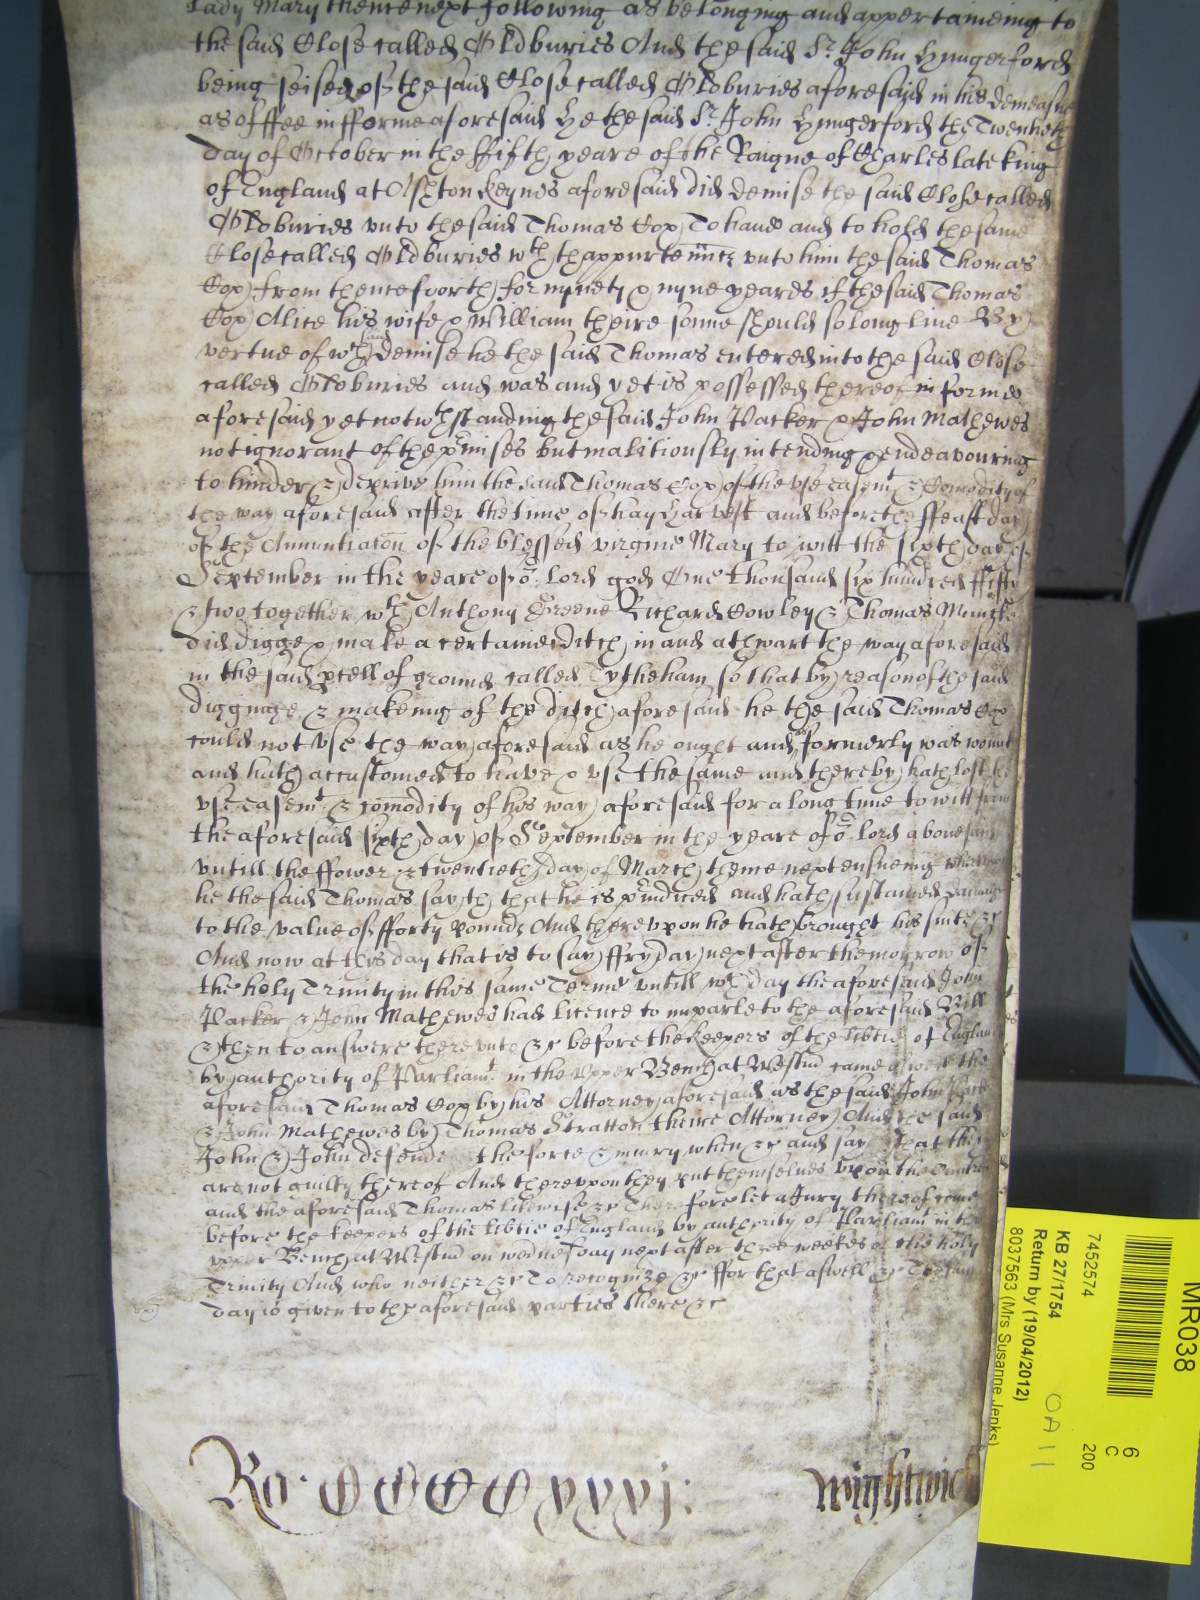 Lady Mary thence next following as belonging and appertaineing to
the said Close called Oldburies And the said Sr John Hungerford
being seised of the said Close called Oldburies aforesaid in his demeasne
as of ffee in fforme aforesaid He the said Sr John Hungerford the Twentieth
day of October in the ffifth yeare of the Raigne of Charles late king
of England at Ashton Keynes aforesaid did demise the said Close called
Oldburies vnto the said Thomas Cox To haue and to hold the same
Close called Oldburies wth thappurtennces vnto him the said Thomas
Cox from thenceforth for nynety & nyne yeares if the said Thomas
Cox Alice his wife & William theire sonne should so long liue By
vertue of wch said demise he the said Thomas entered into the said Close
called Oldburies and was and yet is possessed thereof in forme
aforesaid yet notwthstanding the said John Packer & John Mathewes
not ignorant of the pmises but malitiously intending & endeavouring
to hinder & deprive him the said Thomas Cox of the vse easemt & Comodity of
the way aforesaid after the time of hay harvest and before the ffeast day
of the Annuntiacon of the blessed virgine Mary to witt the sixth day of
September in the yeare of or lord god One thousand six hundred ffifty
& two together wth Anthony Greene Richard Cowley & Thomas
did digge & make a certaine ditch in and athwart the way aforesaid
in the said pcell of ground called Tytheham so that by reason of the said
digginge & makeing of the ditch aforesaid he the said Thomas Cox
could not vse the way aforesaid as he ought and formerly was wount
and hath accustomed to have & vse the same and thereby hath lost the
vse easemt & comodity of his way aforesaid for a long time to witt from
the aforesaid sixth day of September in the yeare of or lord abovesaid
vntill the ffower & twentieth day of March thence next ensueing
he the said Thomas sayth that he is piudiced and hath sustained damage
to the value of fforty pounds And therevpon he hath brought his suite &c
And now at this day that is to say ffryday next after the morrow of
the holy Trinity in this same Terme vntill wch day the aforesaid John
Packer & John Mathewes had licence to imparle to the aforesaid Bill
& then to answere therevnto &c before the keepers of the libtie of England
by authority of Parliamt in the vpper Bench at Westm came aswell the
aforesaid Thomas Cox by his Attorney aforesaid as the said John Packer
& John Mathewes by Thomas Stratton theire Attorney And the said
John & John defend the force & iniury when &c and say that they
are not guilty thereof And therevpon they put themselues vpon the Countrey
and the aforesaid Thomas likewise &c Therefore let a Jury thereof come
before the keepers of the libtie of England by authority of Parliamt in the
vpper Bench at Westm on wednesday next after three weekes of the holy
Trinity And who neither &c To recognize &c ffor that aswell &c The same
day is given to the aforesaid parties there &c
Ro: CCCCxxxj: Wightwick
MR038
6
C
200
7452574
KB 27/1754
Return by (19/04/2012)
8037563 (Mrs Susanne Jenks)